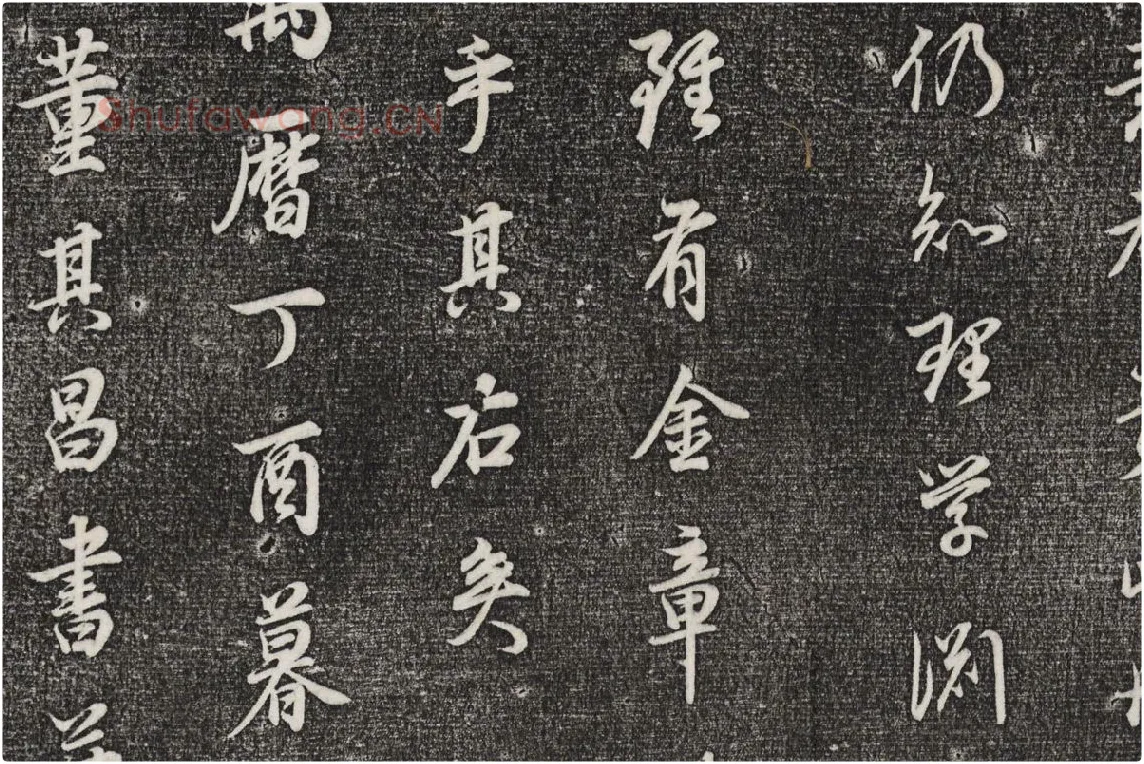 仍知理学渊
虽有金章
乎其右矣
万暦丁酉暮
董其昌書
Shufawang.CN